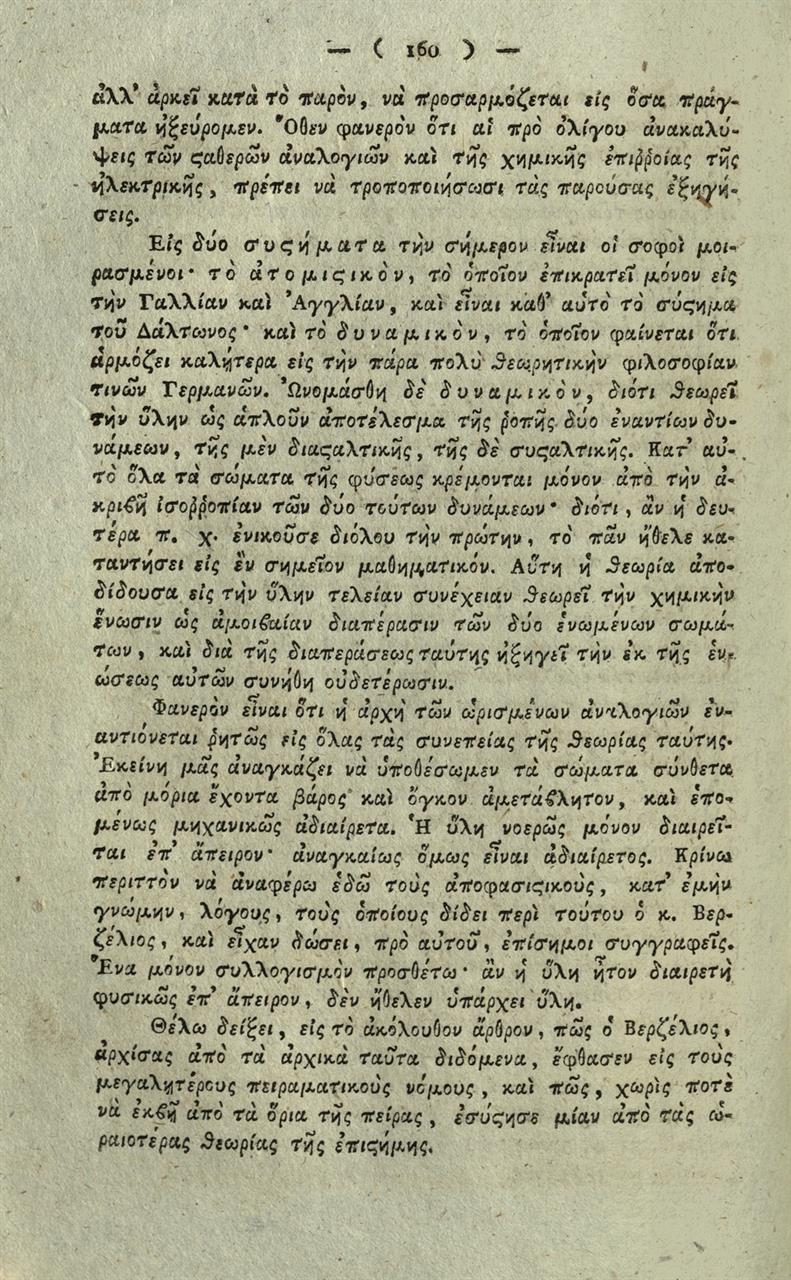 — ( 160 ) —
ἀλλ' ἀρκεῖ κατὰ τὸ παρὸν, νὰ προσαρμόζεται εἰς ὅσα πράγ-
ματα ἠξεύρομεν. Ὅθεν φανερὸν ὅτι αἱ πρὸ ὀλίγου ἀνακαλύ-
ψεις τῶν ϛαθερῶν ἀναλογιῶν καὶ τῆς χημικῆς ἐπιῤῥοίας τῆς
ἠλεκτρικῆς, πρέπει νὰ τροποποιήσωσι τὰς παρούσας ἐξηγή-
σεις.
Εἰς δύο συϛήματα τὴν σήμερον εἶναι οἱ σοφοὶ μοι-
ρασμένοι· τὸ ἀτομιϛικὸν, τὸ ὁποῖον ἐπικρατεῖ μόνον εἰς
τὴν Γαλλίαν καὶ Ἀγγλίαν, καὶ εἶναι καθ' αὑτὸ τὸ σύϛημα
τοῦ Δάλτωνος· καὶ τὸ δυναμικὸν, τὸ ὁποῖον φαίνεται ὅτι
ἁρμόζει καλήτερα εἰς τὴν πάρα πολὺ θεωρητικὴν φιλοσοφίαν
τινῶν Γερμανῶν. Ὠνομάσθη δὲ δυναμικὸν, διότι θεωρεῖ
τὴν ὕλην ὡς ἁπλοῦν ἀποτέλεσμα τῆς ῥοπῆς δύο ἐναντίων δυ-
νάμεων, τῆς μὲν διαϛαλτικῆς, τῆς δὲ συϛαλτικῆς. Κατ' αὐ-
τὸ ὅλα τὰ σώματα τῆς φύσεως κρέμονται μόνον ἀπὸ τὴν ἀ-
κριβῆ ἰσοῤῥοπίαν τῶν δύο τούτων δυνάμεων· διότι, ἂν ἡ δευ-
τέρα π. χ. ἐνικοῦσε διόλου τὴν πρώτην, τὸ πᾶν ἤθελε κα-
ταντήσει εἰς ἓν σημεῖον μαθηματικόν. Αὕτη ἡ θεωρία ἀπο-
δίδουσα εἰς τὴν ὕλην τελείαν συνέχειαν θεωρεῖ τὴν χημικὴν
ἕνωσιν ὡς ἀμοιβαίαν διαπέρασιν τῶν δύο ἑνωμένων σωμά-
των, καὶ διὰ τῆς διαπεράσεως ταύτης ἠξηγεῖ τὴν ἐκ τῆς ἑν-
ώσεως αὐτῶν συνήθη οὐδετέρωσιν.
Φανερὸν εἶναι ὅτι ἡ ἀρχὴ τῶν ὡρισμένων ἀναλογιῶν ἐν-
αντιόνεται ῥητῶς εἰς ὅλας τὰς συνεπείας τῆς θεωρίας ταύτης.
Ἐκείνη μᾶς ἀναγκάζει νὰ ὑποθέσωμεν τὰ σώματα σύνθετα
ἀπὸ μόρια ἔχοντα βάρος καὶ ὄγκον ἀμετάβλητον, καὶ ἑπο-
μένως μηχανικῶς ἀδιαίρετα. Ἡ ὕλη νοερῶς μόνον διαιρεῖ-
ται ἐπ' ἄπειρον· ἀναγκαίως ὅμως εἶναι ἀδιαίρετος. Κρίνω
περιττὸν νὰ ἀναφέρω ἐδῶ τοὺς ἀποφασιϛικοὺς, κατ' ἐμὴν
γνώμην, λόγους, τοὺς ὁποίους δίδει περὶ τούτου ὁ κ. Βερ-
ζέλιος, καὶ εἶχαν δώσει, πρὸ αὐτοῦ, ἐπίσημοι συγγραφεῖς.
Ἕνα μόνον συλλογισμὸν προσθέτω· ἂν ἡ ὕλη ἦτον διαιρετὴ
φυσικῶς ἐπ' ἄπειρον, δὲν ἤθελεν ὑπάρχει ὕλη.
Θέλω δείξει, εἰς τὸ ἀκόλουθον ἄρθρον, πῶς ὁ Βερζέλιος,
ἀρχίσας ἀπὸ τὰ ἀρχικὰ ταῦτα διδόμενα, ἔφθασεν εἰς τοὺς
μεγαλητέρους πειραματικοὺς νόμους, καὶ πῶς, χωρὶς ποτὲ
νὰ ἐκβῇ ἀπὸ τὰ ὅρια τῆς πείρας, ἐσύϛησε μίαν ἀπὸ τὰς ὡ-
ραιοτέρας θεωρίας τῆς ἐπιϛήμης.